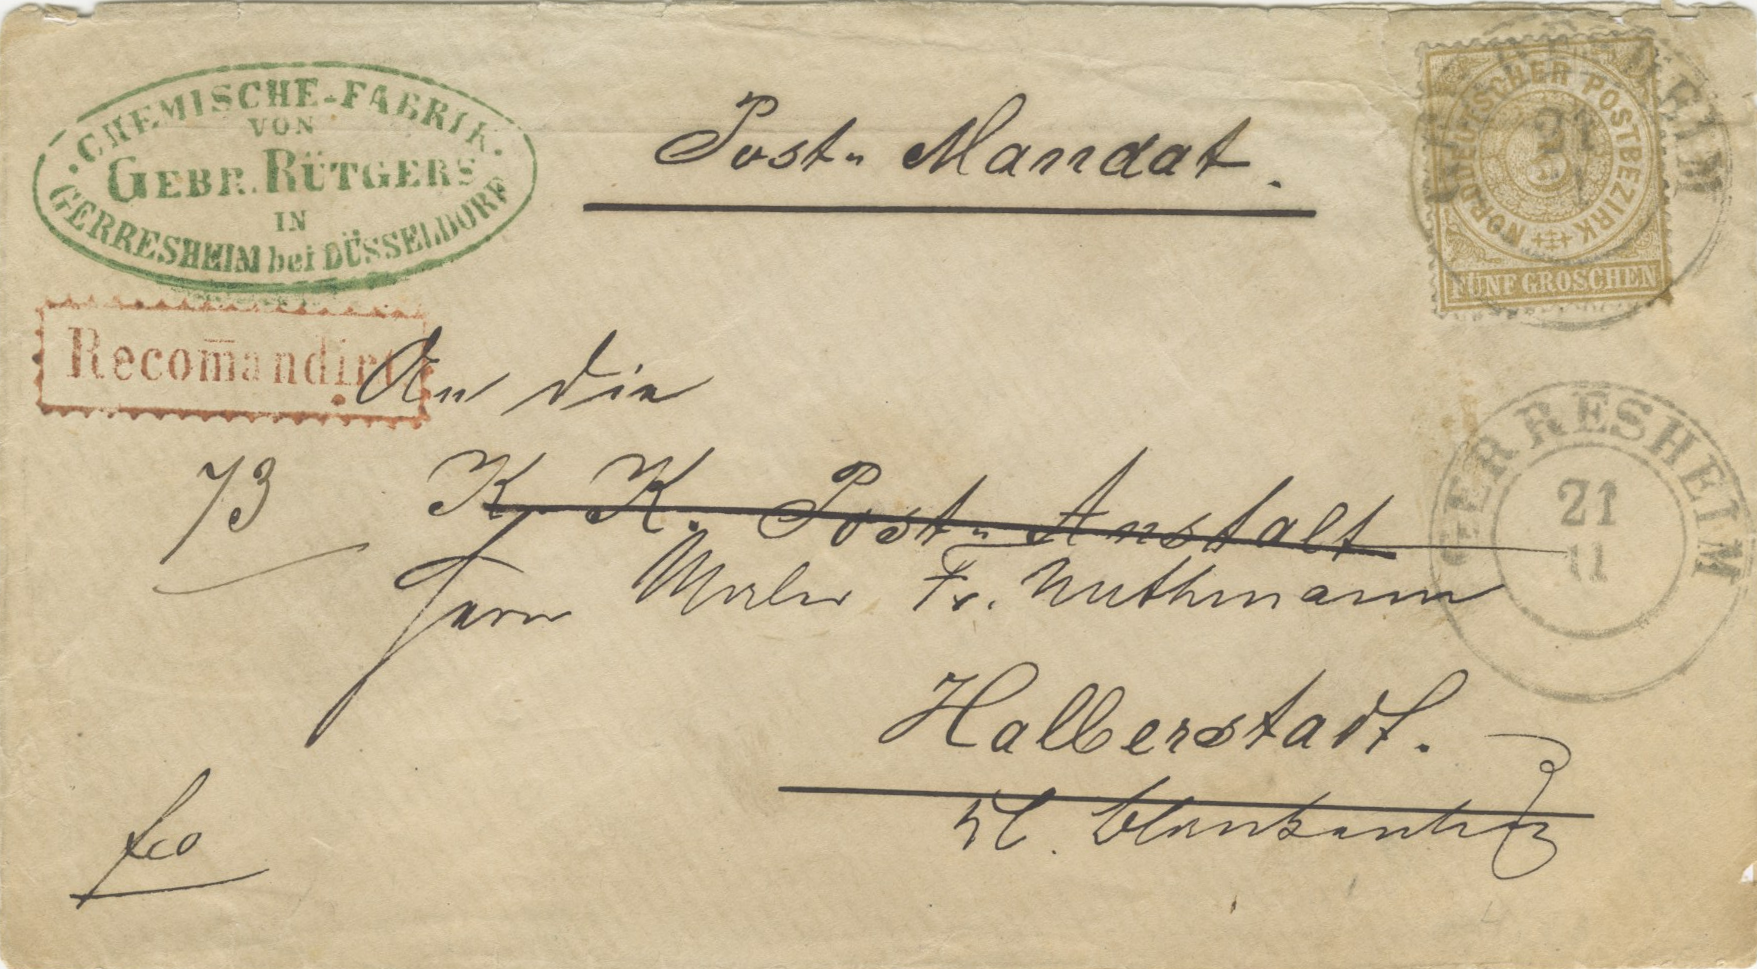 CHEMISCHE-FABRIK
VON
GEBR. RÜTGERS
IN
GERRESHEIM bei DÜSSELDORF
Post- Mandat.
NORDDEUTSCHER POSTBEZIRK
5
FÜNF GROSCHEN
GERRESHEIM
21
Recom̄andirt
An die
73
K. K. Post-Anstalt
GERRESHEIM
21
11
Herrn Maler Fr. Nuthmann
Halberstadt.
fco